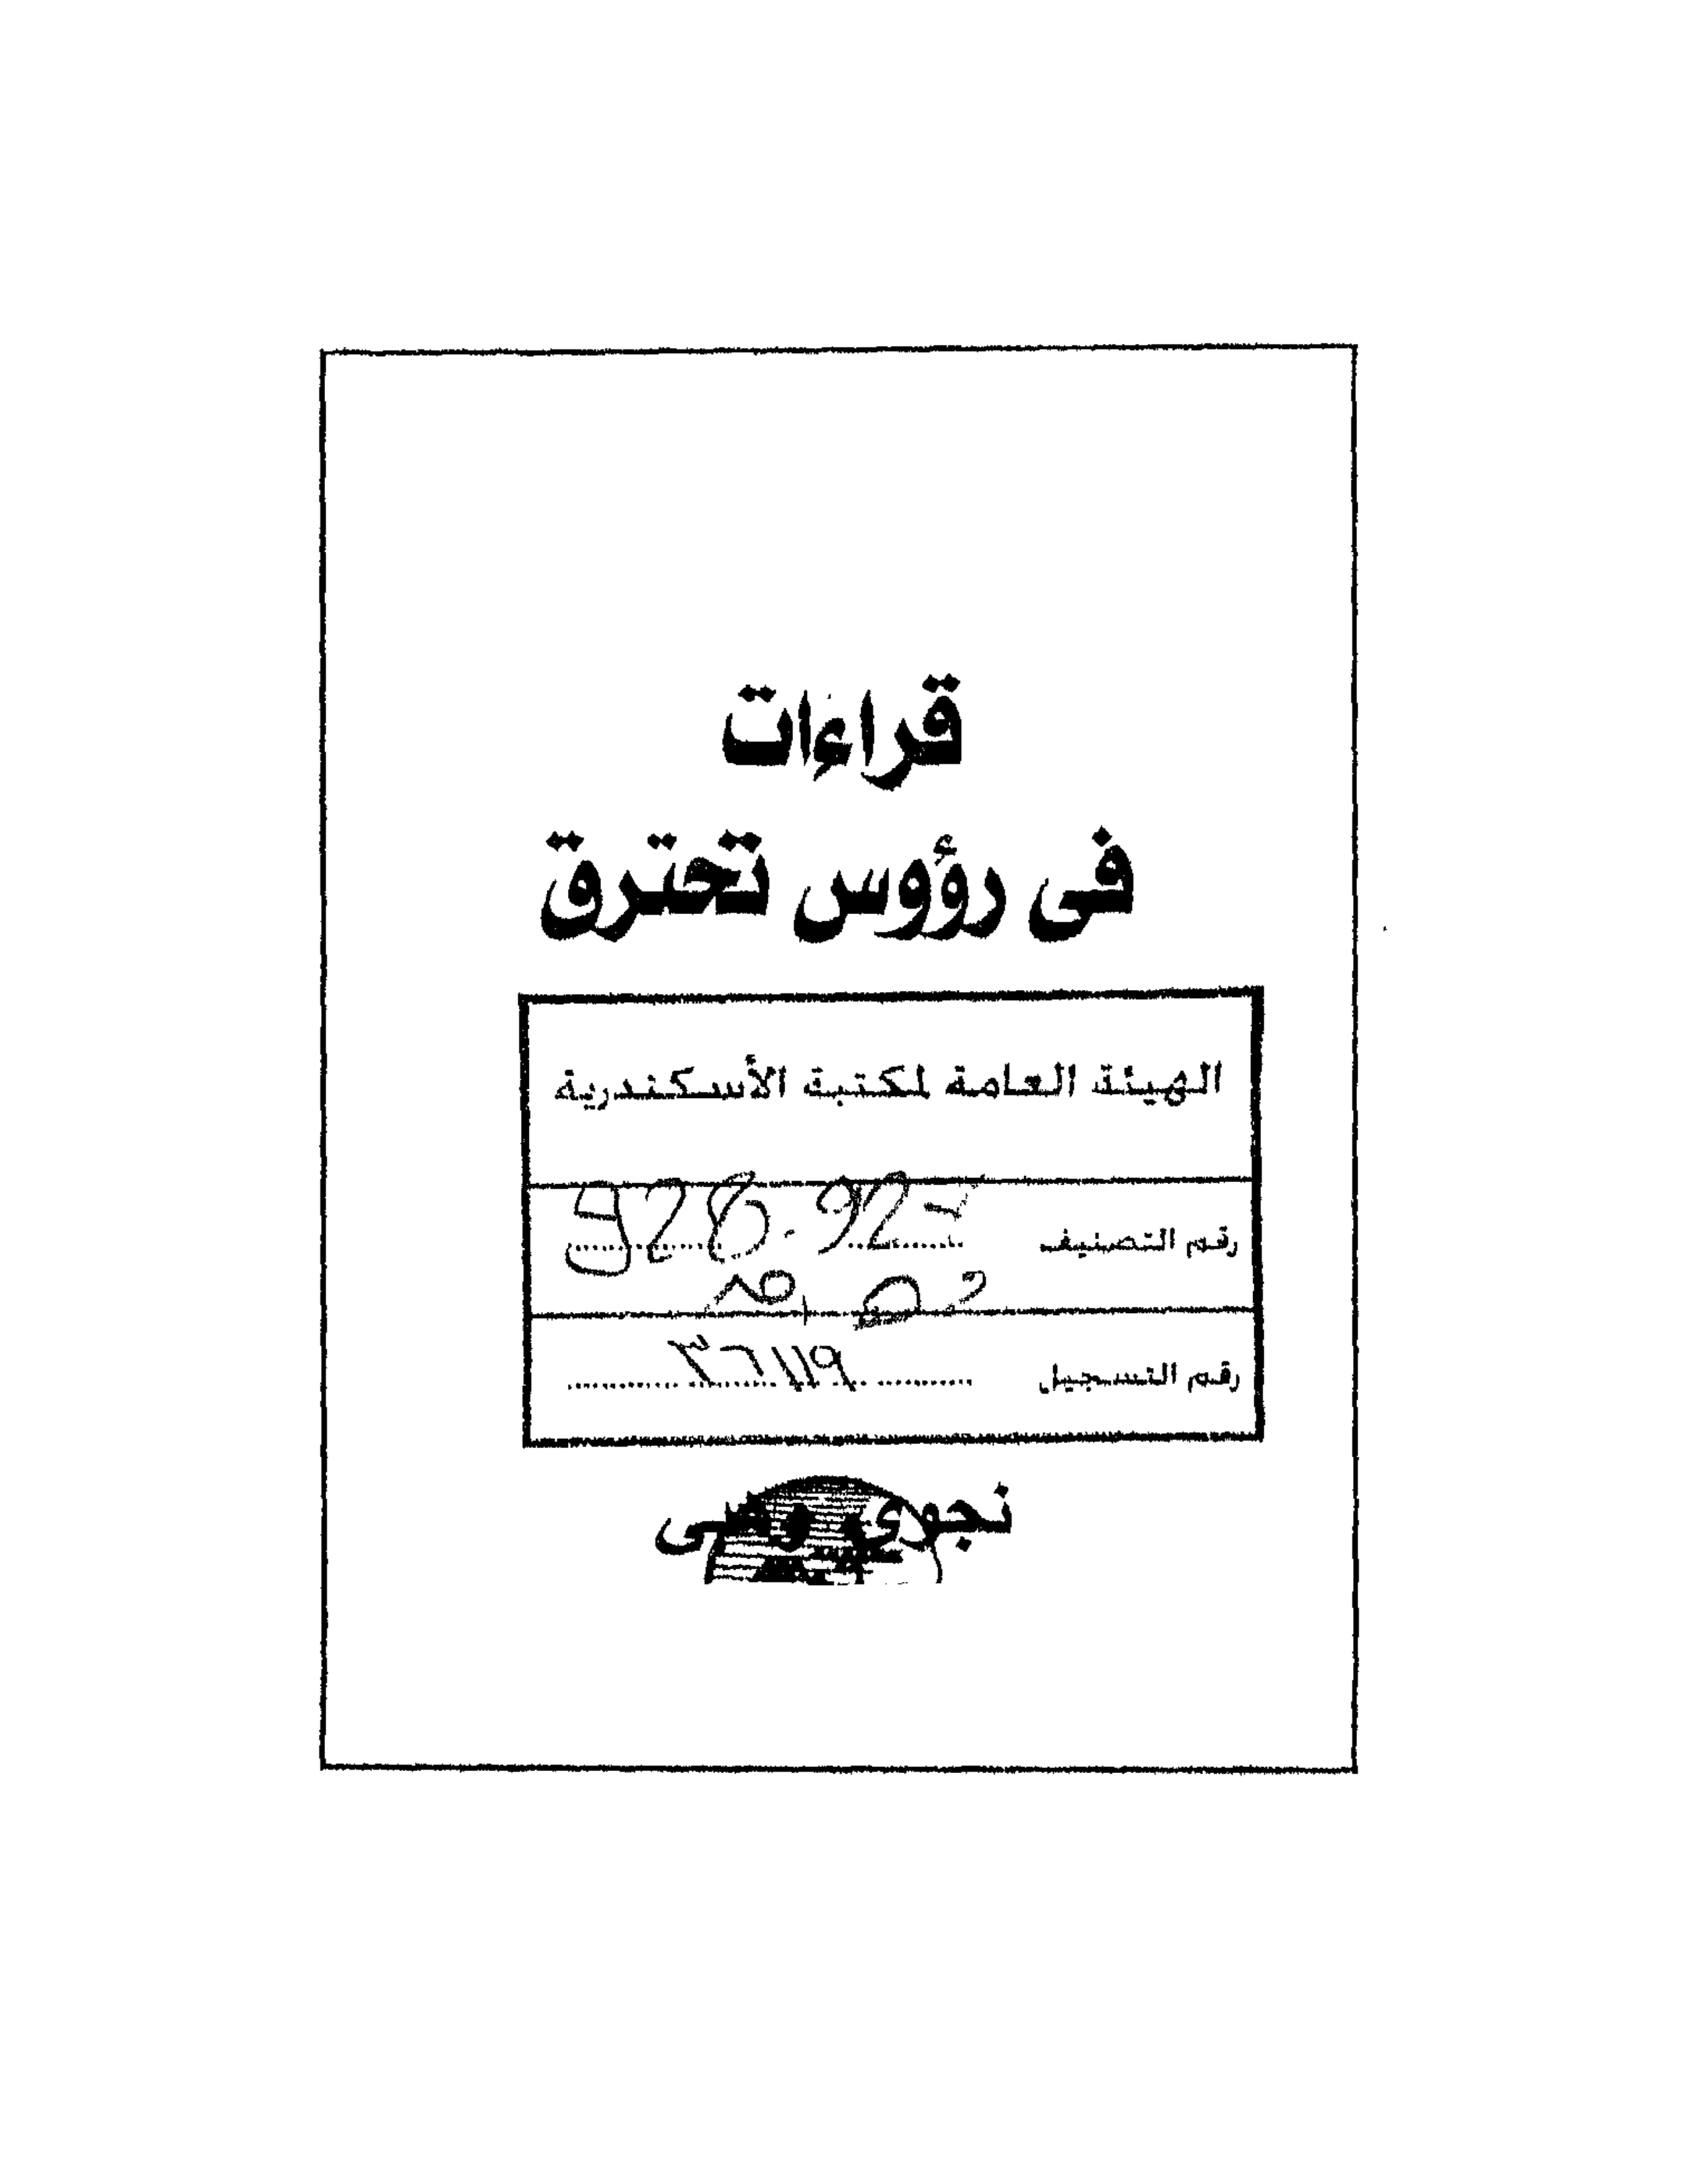 قراءات
فى رؤوس تحترق
الهيئة العامة لمكتبة الأسكندرية
رقم التصنيف 928.927
رقم التسجيل ٣٦١١٩
نجوى